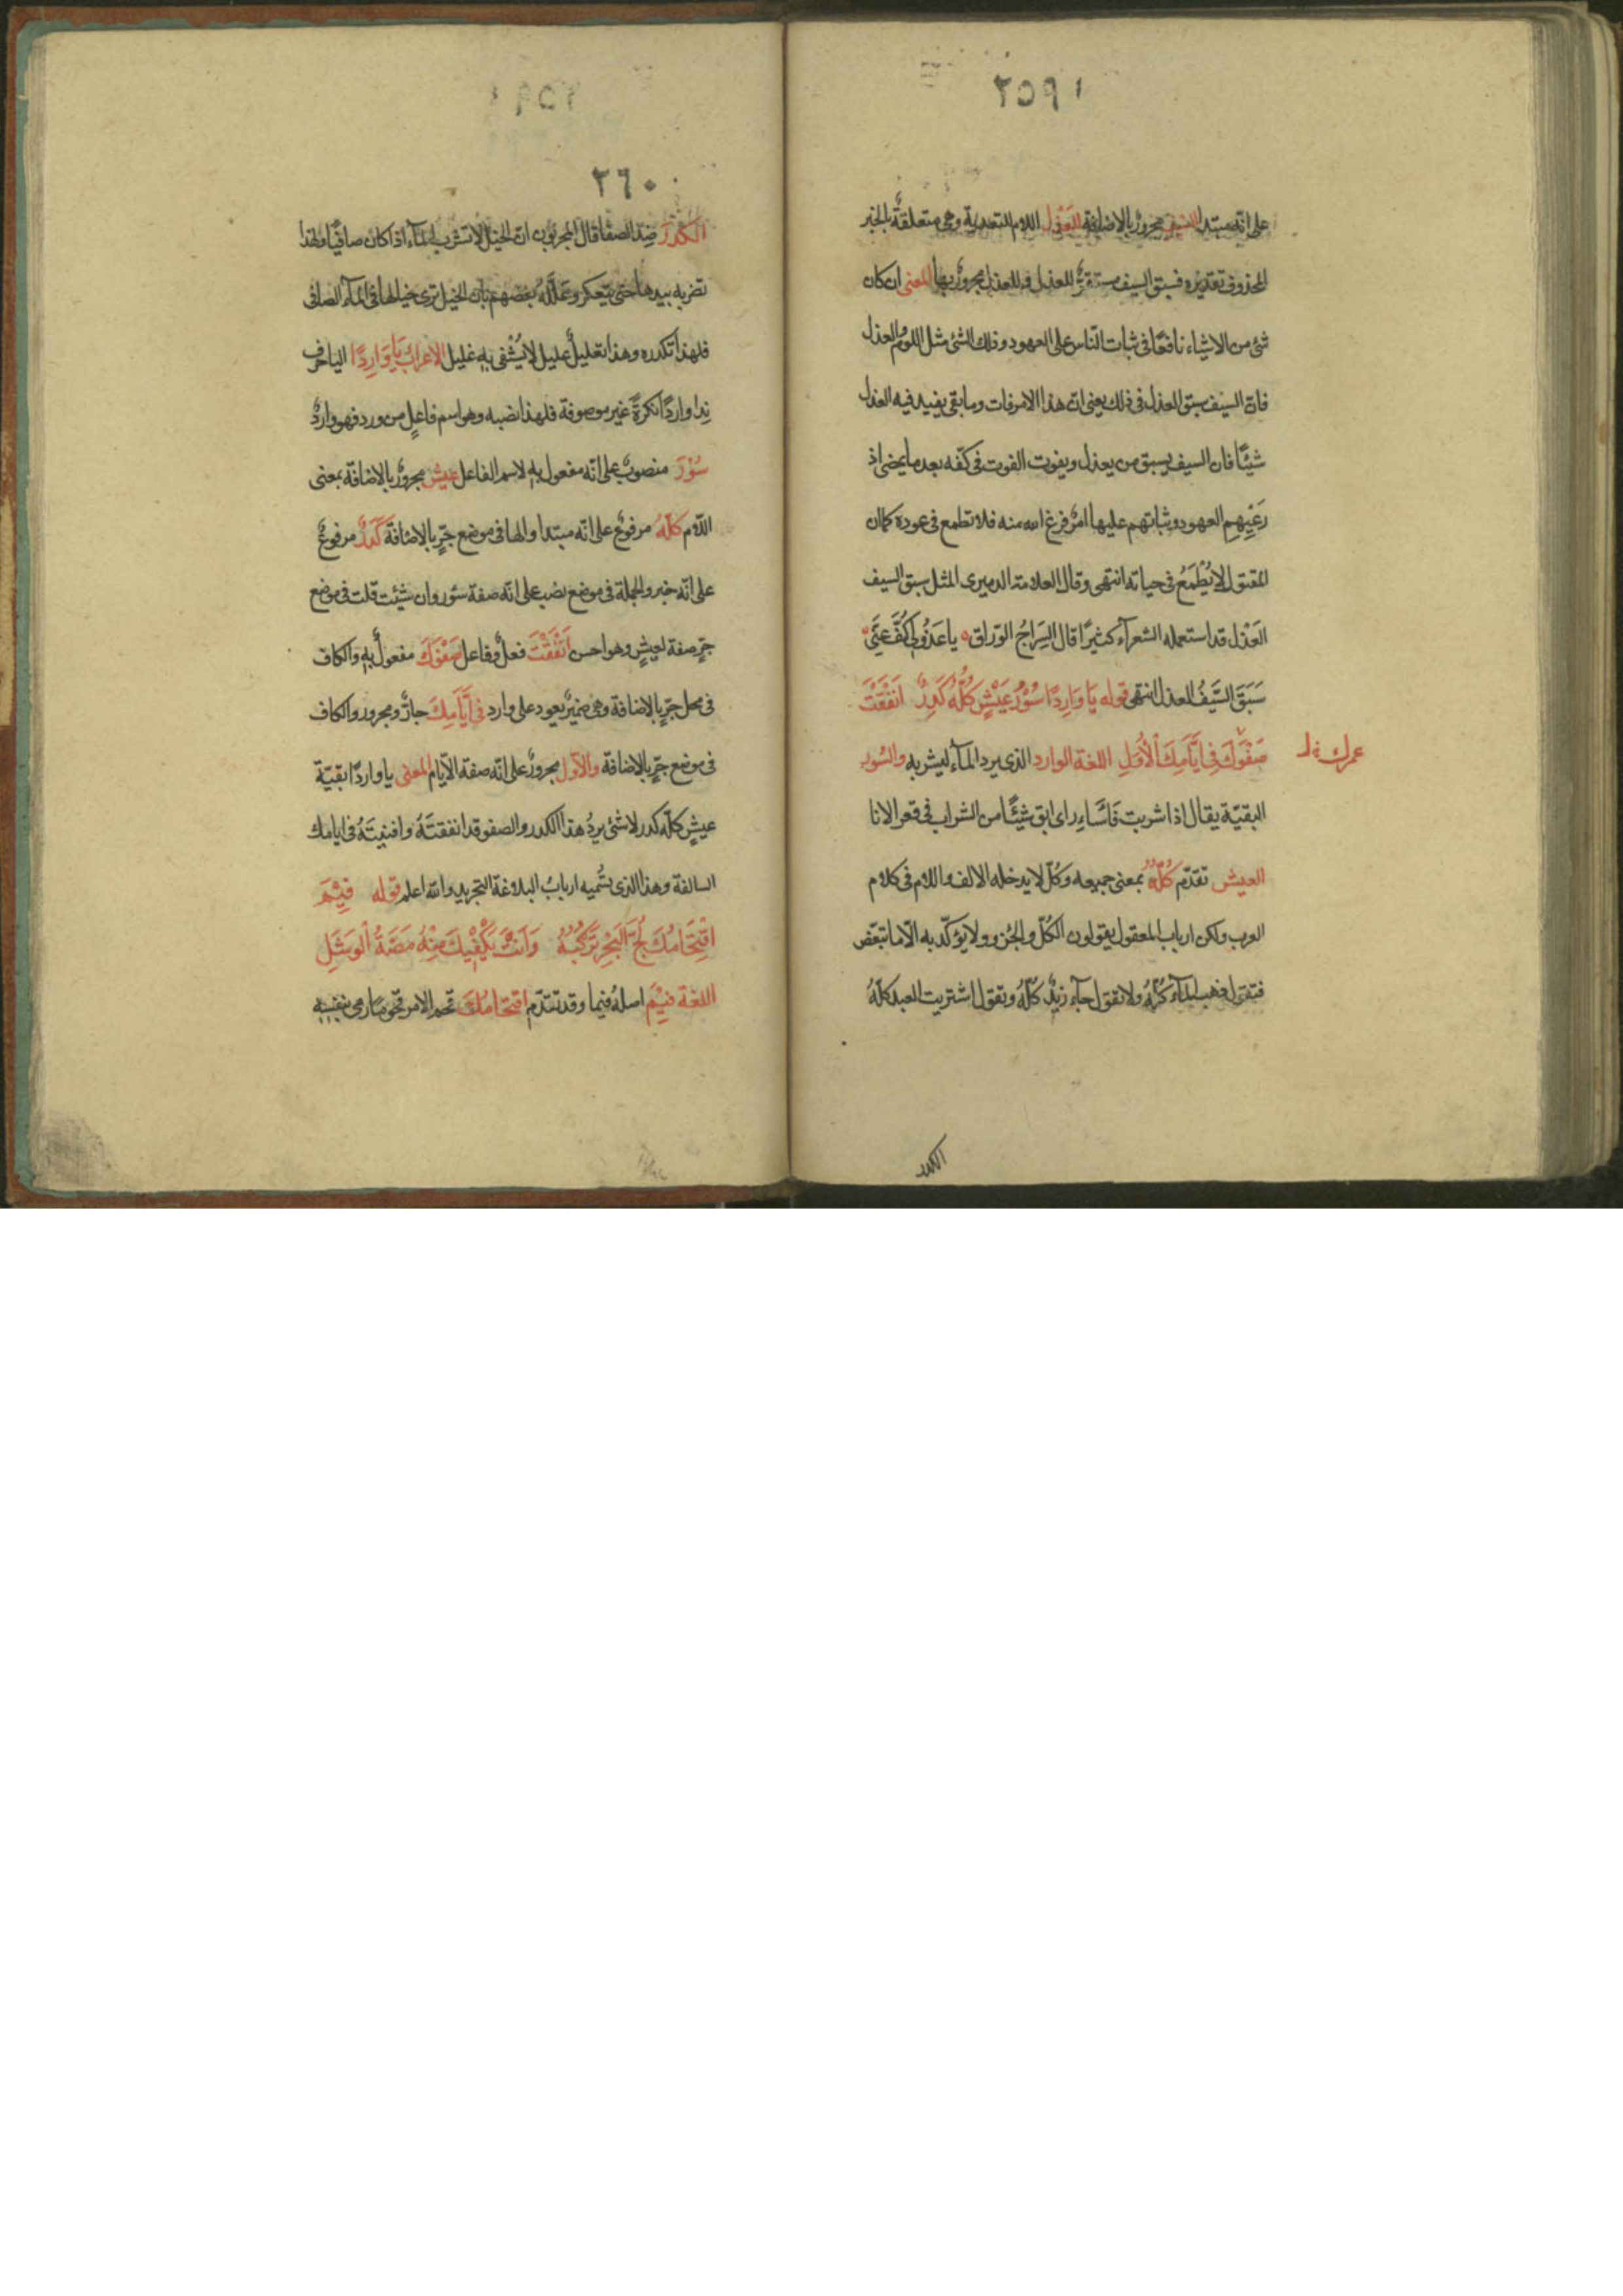 ٢٥٩١
على انه مبتدا السيف مجرور بالاضافة العذل اللام للتعدية وهى متعلقة بالخبر
المحذوف تقديره فسبق السيف مستقر للعذل فالعذل مجرور بها المعنى ان كان
شئ من الاشياء نافعًا فى ثبات النّاس على العهود وذلك الشئ مثل اللوم والعذل
فان السيف سبق العذل فى ذلك يعنى ان هذا الامر فات وما بقى يفيد فيه العذل
شيئًا فان السيف يسبق من يعذل ويفوت الفوت فى كفّه بعد ما يمضى اذ
رَعْيِهِم العهود وثباتهم عليها امرٌ فرغ الله منه فلا تطمع فى عوده كما ان
المقتول لا يُطْمَعُ فى حياته انتهى وقال العلامة الدميرى المثل سبق السيف
العَذْل قد استعمله الشعرآء كثيرًا قال السِرَاجُ الورّاق ٥ يا عَذُولى كُفَّ عَنِّى ٥
سَبَقَ السَّيْفُ العذل انتهى قوله يَا وَارِدًا سُؤْرُ عَيْشٍ كُلُّهُ كَدِرٌ اَنْفَقْتَ
صَفْوَكَ فِى اَيَّامِكَ الأُوَلِ اللغة الوارد الذى يرد المآء ليشربه والسُور
عمرك
البقيّة يقال اذا شربت فَاَسْاءِر اى ابق شيئًا من الشراب فى قعر الانا
العيش تقدّم كُلُّهُ بمعنى جميعه وكُلّ لا يدخله الالف واللام فى كلام
العرب ولكن ارباب المعقول يقولون الكُلّ والجُزؤ ولا يؤكّد به الّا ما تبعّض
فتقول ذهب المآء كُلّهُ ولا تقول جآء زيدٌ كلّهُ وتقول اشتريت العبد كلّهُ
الكدر
٢٦٠
الكَدَرُ ضِدّ الصفا قال المجربون ان الخيل لا تشرب المآء اذا كان صافيًا ولهذا
تضربه بيدها حتى يتعكر وعَلّلَهُ بعضهم بان الخيل ترى خيالها فى المآء الصافى
فلهذا تكدره وهذا تعليلٌ عليل لا يُشْفى به غليل الاعراب يَا وَارِدًا اليا حرف
نِدا واردًا نكرةٌ غير موصوفة فلهذا نصبه وهو اسم فاعلٍ من ورد فهو واردٌ
سُؤْرَ منصوبٌ على انّه مفعول به لاسم الفاعل عيش مجرورٌ بالاضافة بمعنى
اللّام كلّهُ مرفوعٌ على انّه مبتدا والها فى موضع جرٍّ بالاضافة كَدِرٌ مرفوعٌ
على انّه خبر والجملة فى موضع نصب على انّه صفة سؤر وان شئت قلت فى موضع
جرٍّ صفة لعيشٍ وهو احسن اَنْفَقْتَ فعلٌ وفاعل صَفْوَكَ مفعولٌ به والكاف
فى محل جرٍّ بالاضافة وهى ضميرٌ يعود على وارد فى اَيَّامِكَ جارٌ ومجرور والكاف
فى موضع جرٍّ بالاضافة والأوَل مجرورٌ على انّه صفة الايّام المعنى يا واردًا بقيّة
عيشٍ كلّه كدر لا شئ يردُ هذا الكدر والصفو قد انفقتَهُ وافنيتَهُ فى ايامك
السالفة وهذا الذى يسُمّيه اربابُ البلاغة التجريد والله اعلم قوله فِيْمَ
اقْتِحَامُكَ لُجَّ الْبَحْرِ تَرْكَبُهُ وَاَنْتَ يَكْفِيْكَ مِنْهُ مَصَّةُ الْوَشَلِ
اللغة فِيْمَ اصلهُ فيما وقد تقدّم اقتحَامُكَ قحم الامر قحومًا رمى بنفسِه